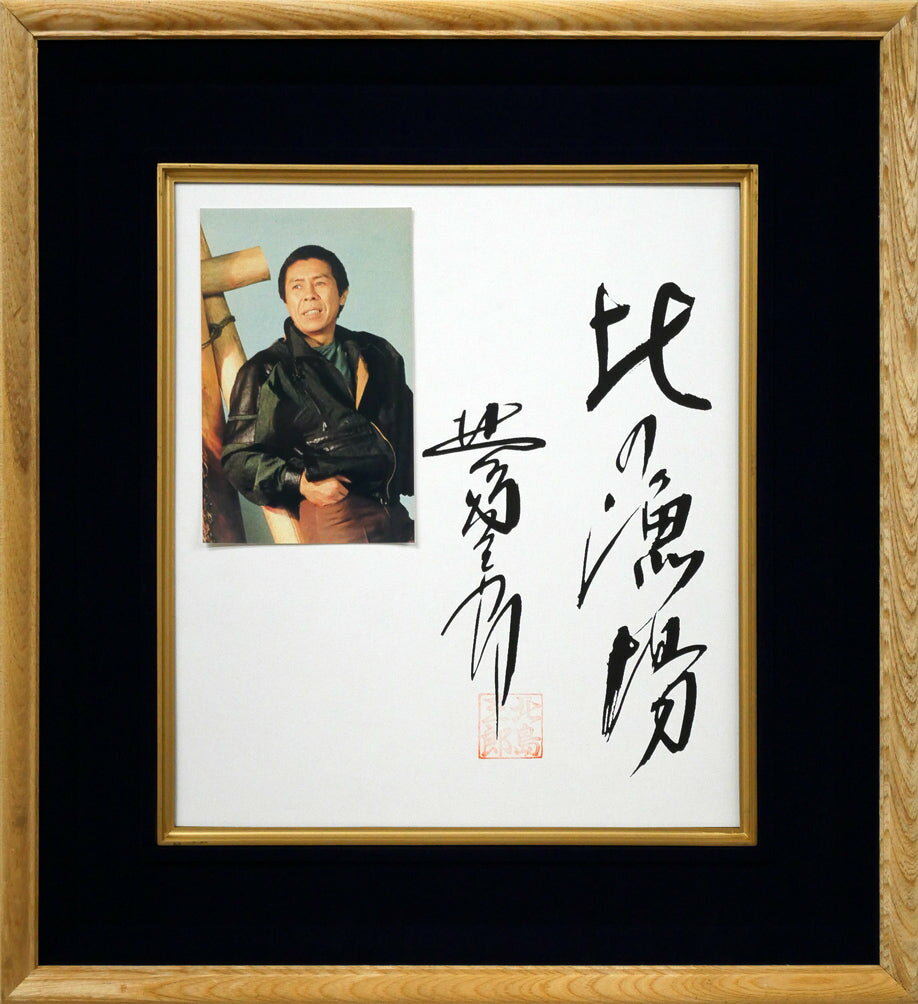 北の漁場
北島三郎
北島
三郎